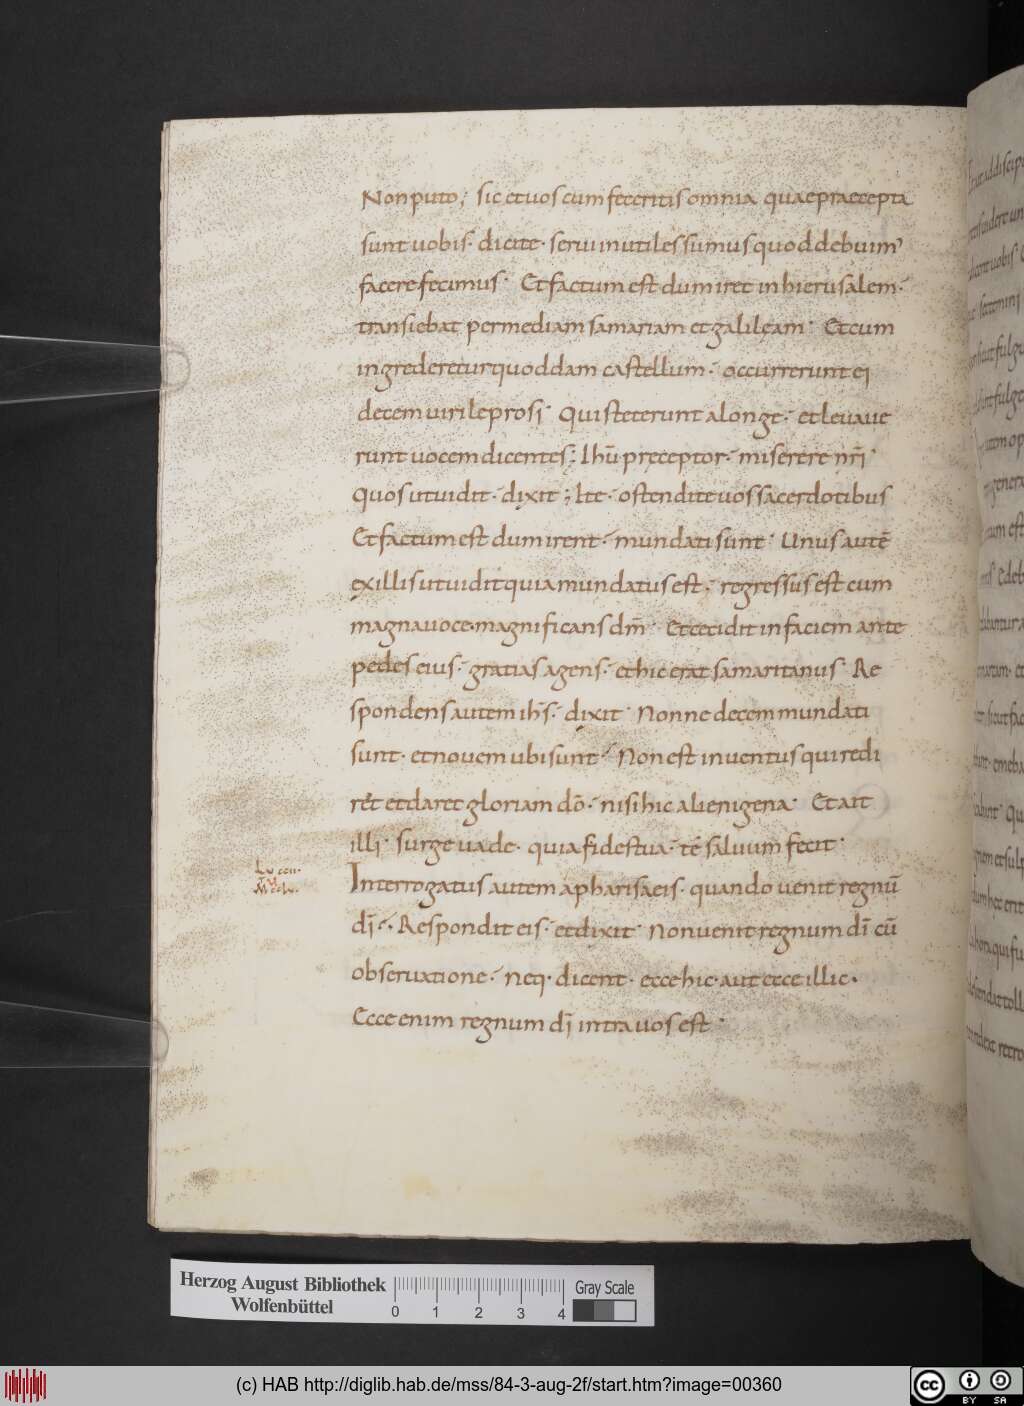 Non puto; sic et uos cum feceritis omnia quae praecepta
sunt uobis· dicite· serui inutiles sumus quod debuim'
facere fecimus· Et factum est dum iret in hierusalem·
transiebat per mediam samariam et galileam· Et cum
ingrederetur quoddam castellum· occurrerunt ei
decem uiri leprosi· Qui steterunt a longe· et leuaue
runt uocem dicentes; Ihū pręceptor· miserere nr̄i·
Quos ut uidit· dixit; Ite· ostendite uos sacerdotibus
Et factum est dum irent· mundati sunt· Unus autē
ex illis ut uidit quia mundatus est· regressus est cum
magna uoce· magnificans dm̄· Et cecidit in faciem ante
pedes eius· gratias agens· et hic erat samaritanus· Re
spondens autem ih̄s· dixit· Nonne decem mundati
sunt· et nouem ubi sunt· Non est inuentus qui redi
ret et daret gloriam dō· nisi hic alienigena· Et ait
illi· surge uade· quia fides tua· te saluum fecit·
Interrogatus autem a pharisaeis· quando uenit regnū
dī· Respondit eis· et dixit· Non uenit regnum dī cū
obseruatione· neq· dicent· ecce hic· aut ecce illic·
Ecce enim regnum dī intra uos est·
Herzog August Bibliothek
Wolfenbüttel
0 1 2 3 4
Gray Scale
(c) HAB http://diglib.hab.de/mss/84-3-aug-2f/start.htm?image=00360
cc BY SA